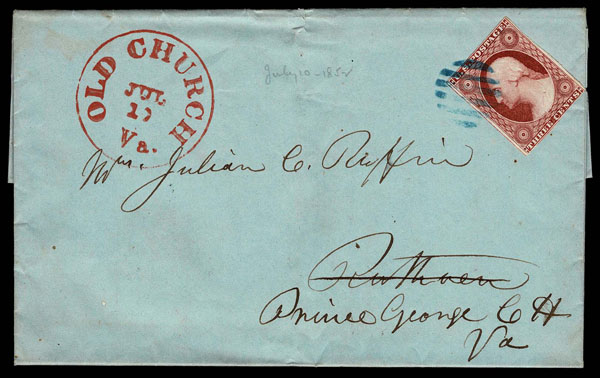 OLD CHURCH
JUL
Va.
July 10 - 1852
U.S. POSTAGE
THREE CENTS
Mr. Julian C. Ruffin
Ruthven
Prince George C H
Va